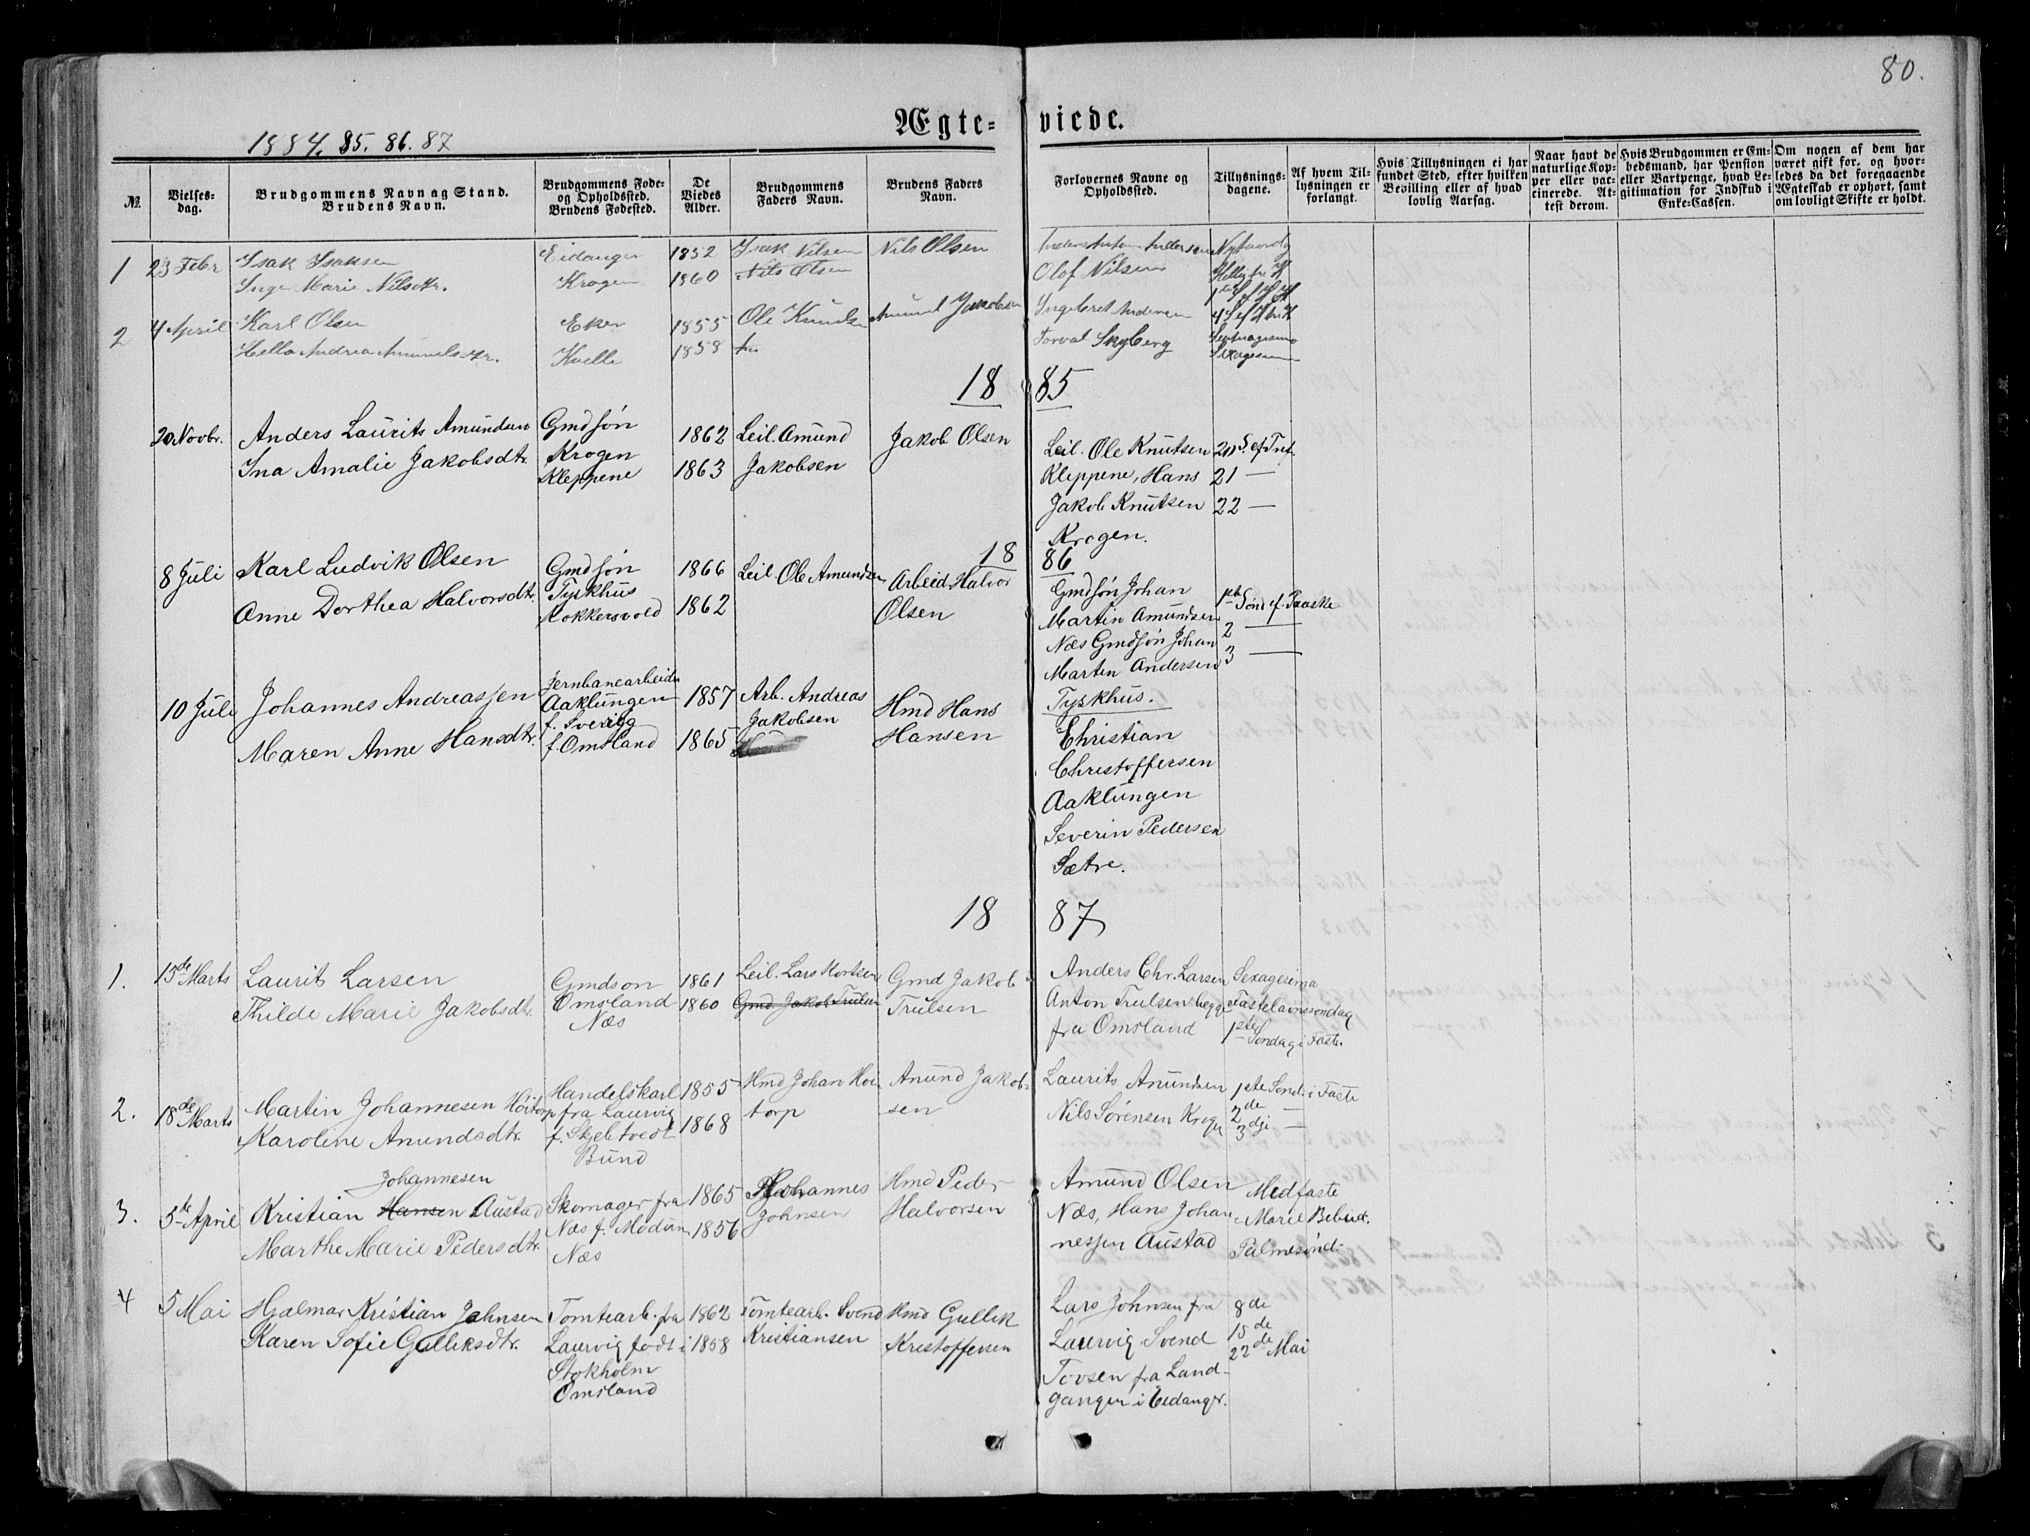 80.
Ægte- viede.
1884. 85. 86. 87
№.
Vielses-
dag.
Brudgommens Navn og Stand.
Brudens Navn.
Brudgommens Føde-
og Opholdssted.
Brudens Fødested.
De
Viedes
Alder.
Brudgommens
Faders Navn.
Brudens Faders
Navn.
Forlovernes Navne og
Opholdssted.
Tillysnings-
dagene.
Af hvem Til-
lysningen er
forlangt.
Hvis Tillysningen ei har
fundet Sted, efter hvilken
Bevilling eller af hvad
lovlig Aarsag.
Naar havt de
naturlige Kop-
per eller vac-
cinerede. At-
test derom.
Hvis Brudgommen er Em-
bedsmand, har Pension
eller Vartpenge, hvad Le-
gitimation for Indskud i
Enke-Cassen.
Om nogen af dem har
været gift før, og hvor-
ledes da det foregaaende
Ægteskab er ophørt, samt
om lovligt Skifte er holdt.
1 23 Febr Isak Isaksen Eidanger 1852 Isak Nilsen Nils Olsen
Inge Marie Nilsdtr. Krogen 1860 Nils Olsen
Olof Nilsen
2 4 April Karl Olsen Eker 1855 Ole Knudsen Amund Jakobsen
Hella Andrea Amundsdtr. Kvelle 1858
Ingebret Andersen
Torval Skyberg
Septuagesima
Sexagesima
18 85
20 Novbr. Anders Laurits Amundsen Gmdsøn 1862 Leil. Amund Jakob Olsen
Ina Amalie Jakobsdtr. Krogen 1863 Jakobsen
Kleppene
Leil. Ole Knutsen 20 S. ef. Tref.
Kleppene, Hans 21 —
Jakob Knutsen 22 —
Krogen.
18 86
8 Juli Karl Ludvik Olsen Gmdsøn 1866 Leil. Ole Amundsen Arbeid Halvor
Tyskhus
Anne Dorthea Halvorsdtr. Kokkersvold 1862 Olsen
Gmdsøn Johan 1ste Sønd. ef. Paaske
Martin Amundsen 2 —
Næs Gmdsøn Johan 3 —
Martin Andersen
Tyskhus.
10 Juli Johannes Andreassen Jernbanearbeider 1857 Arb. Andreas Hmd Hans
Aaklungen Jakobsen Hansen
f. Sverigg
Maren Anne Hansdtr. f. Omsland 1865
Christian
Christoffersen
Aaklungen
Severin Pedersen
Sætre.
18 87
1. 15de Marts Laurits Larsen Gmdson 1861 Leil. Lars Gmd Jakob
Thilde Marie Jakobsdtr. Omsland 1860 Gmd. Jakob Trulsen Trulsen
Næs
Anders Chr. Larsen Sexagesima
Anton Trulsen begge Fastelavnssøndag
fra Omsland 1ste Søndag i Faste.
2. 18de Marts Martin Johannesen Høitorp Handelskarl 1855 Hmd Johan Høi- Anund Jakob-
fra Laurvig torp sen
Karoline Anundsdtr. f. Skjeltvedt 1868
Bund
Laurits Anundsen 1ste Sønd. i Faste
Nils Sørensen Krogen 2de —
3dji —
3. 5te April Johannesen
Kristian Hansen Austad Skomager fra 1865 Johannes Hmd Peder
Næs f. Modum 1856 Johnsen Halvorsen
Marthe Marie Pedersdtr. Næs
Amund Olsen Medfaste
Næs, Hans Johan- Marie Bebud.
nessen Austad Palmesønd-
4 5 Mai Hjalmar Kristian Johnsen Tomtearb. fra 1862 Tomtearb. Svend Hmd Gullik
Karen Sofie Gulliksdtr. Laurvig født i 1858 Kristiansen Kristoffersen
Stokholm
Omsland
Lars Johnsen fra 8de
Laurvig Svend 15de
Tovsen fra Land- 22de Mai
gangen i Eidanger.